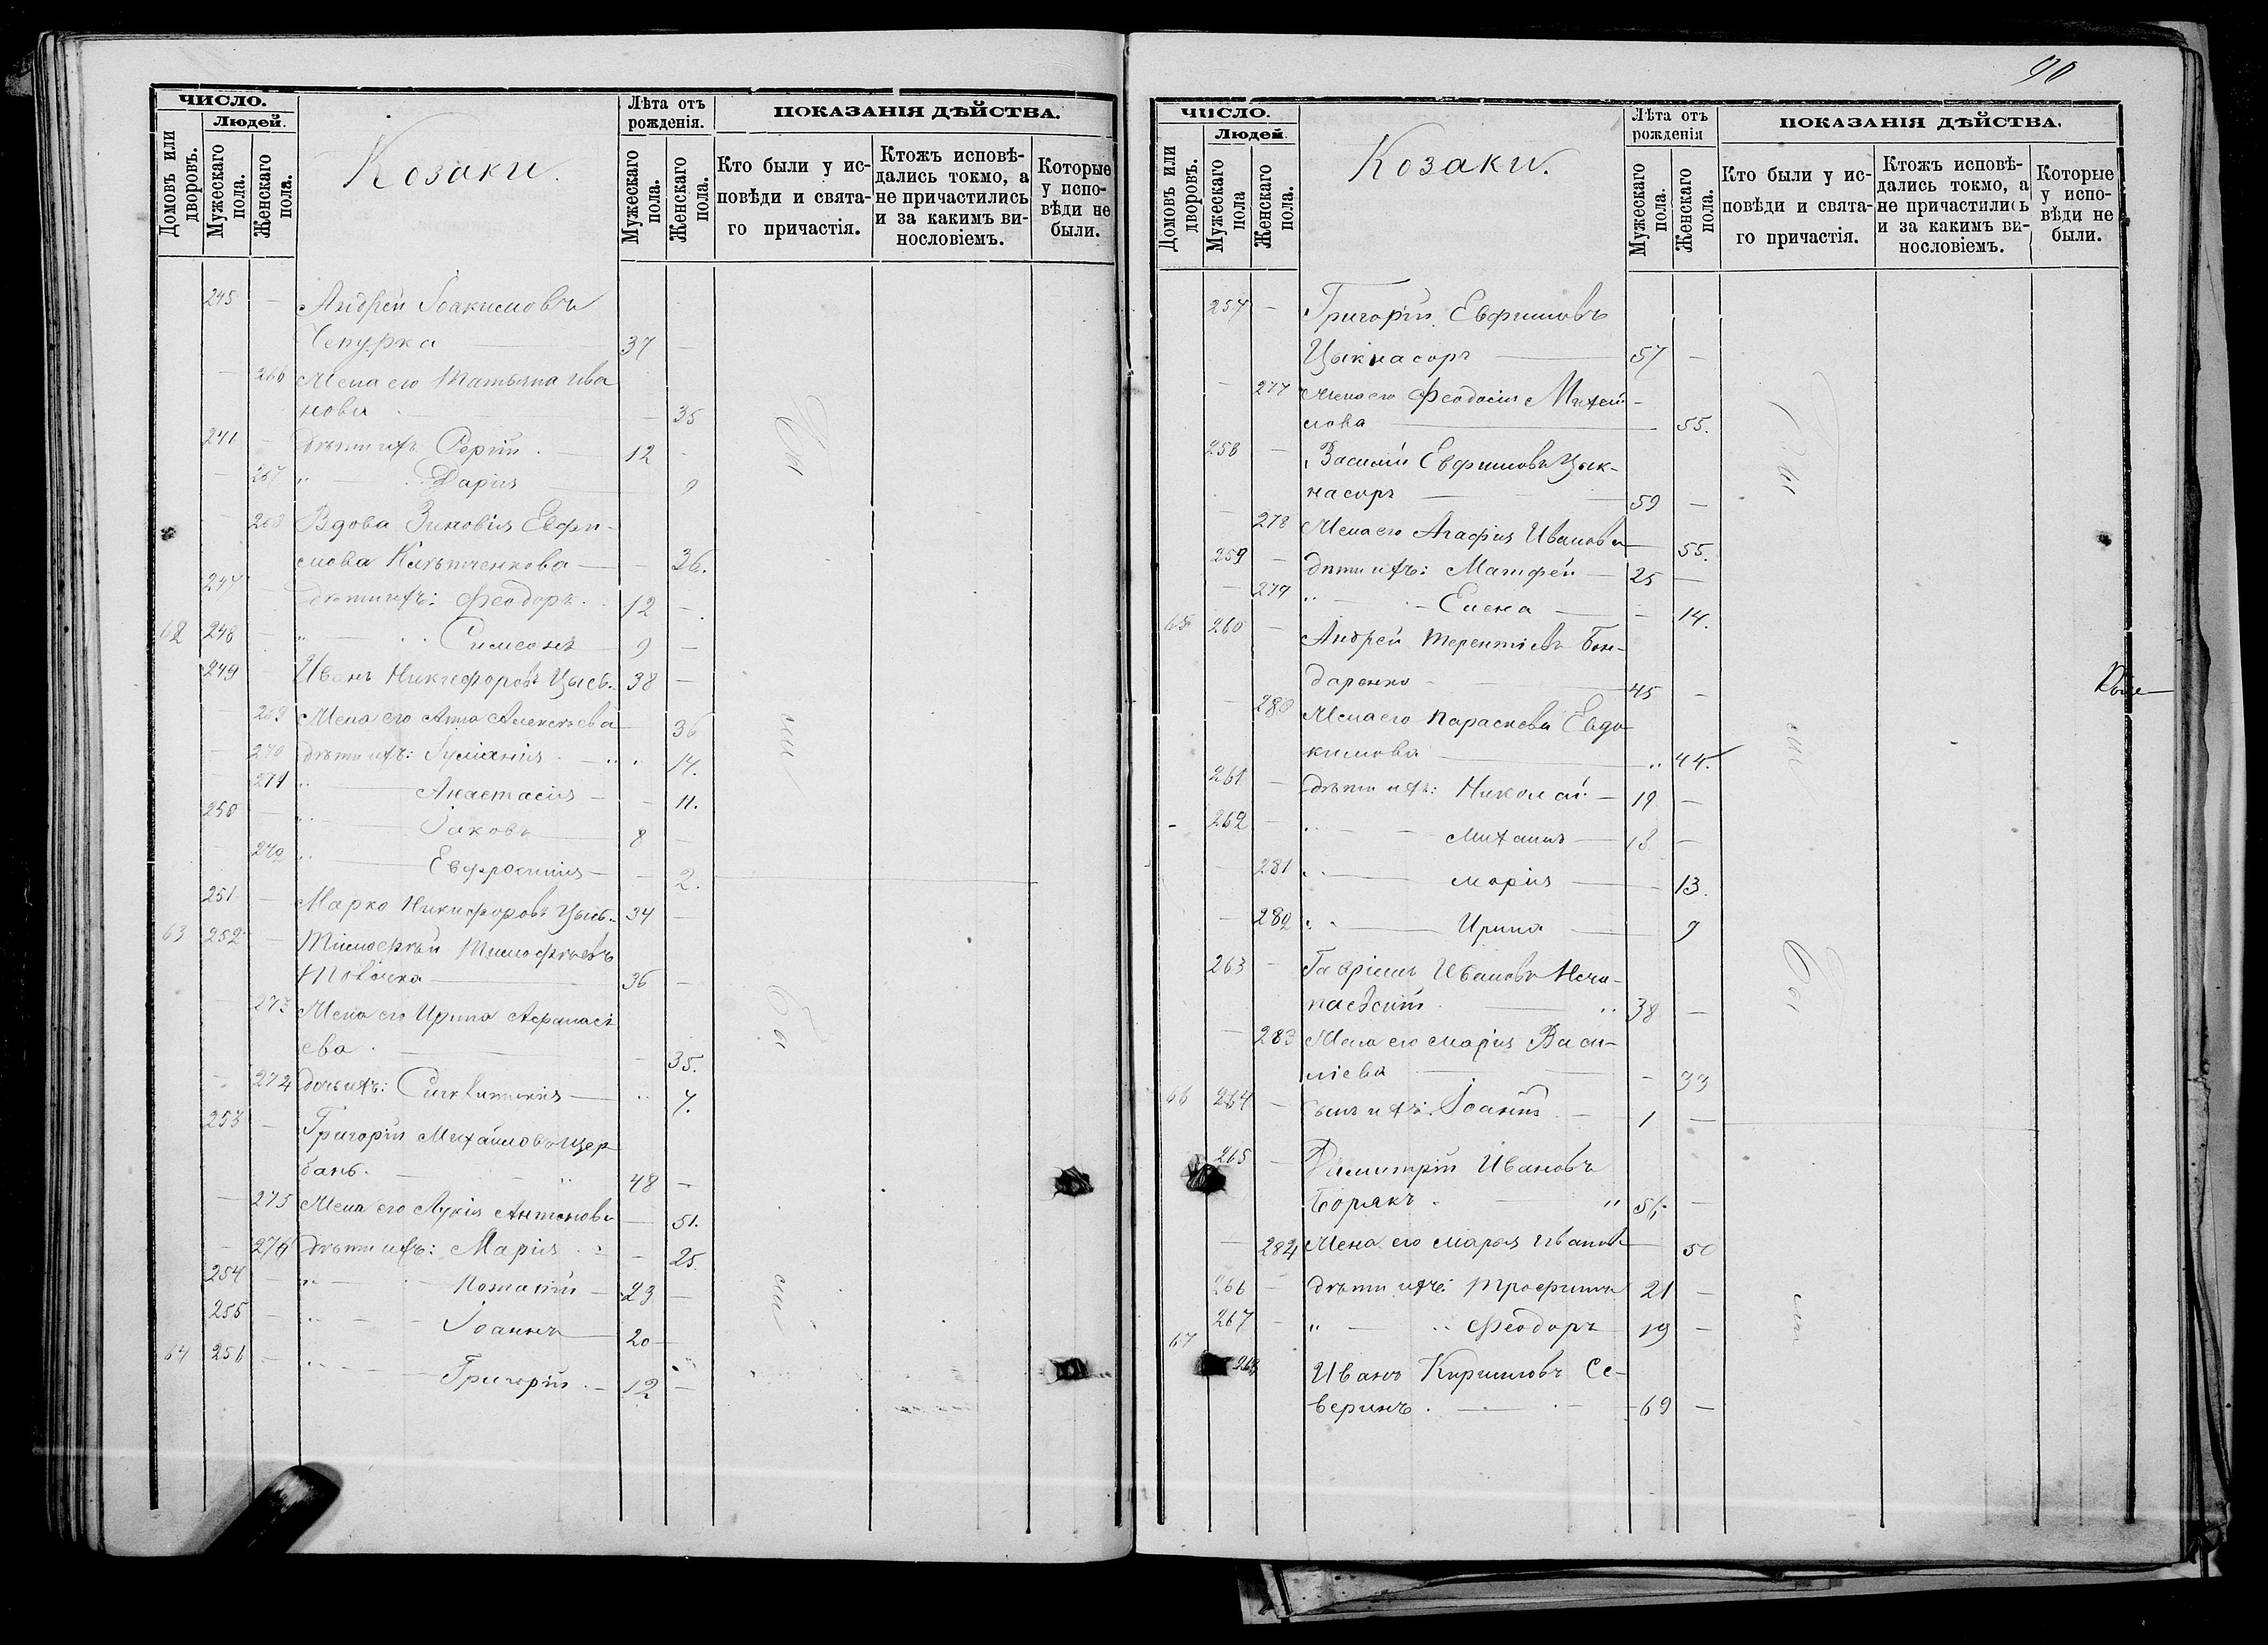 90
ЧИСЛО.
Людей.
Домовъ или дворовъ.
Мужескаго пола.
Женскаго пола.
Козаки.
Лѣта отъ рожденія.
Мужескаго пола.
Женскаго пола.
ПОКАЗАНІЯ ДѢЙСТВА.
Кто были у ис-
повѣди и свята-
го причастія.
Ктожъ исповѣ-
дались токмо, а
не причастились
и за какимъ ви-
нословіемъ.
Которые
у испо-
вѣди не
были.
245 — Андрей Іоакимовъ
Чепурка — 37 —
— 266 Жена его Татьяна Ива
нова — 35
— дѣти ихъ: Сергій — 12 —
— 267 " — Дарія — 9
— Вдова Зиновія Евфи-
мова — 36.
247 — дѣти ихъ: Феодоръ — 12 —
62 248 — " — Симеонъ 9 —
249 — Иванъ Никифоровъ Цыб. 38 —
— 269 Жена его Анна Алексѣева 36
— 270 дѣти ихъ: Іуліанія — 14.
— 271 " — Анастасія — 11.
250 — " — Іаковъ 8 —
— 272 " — Евфросинія — 2.
251 — Марко Никифоровъ Цыб. 34 —
63 252 — Тимофѣй Тимофѣевъ
— 36 —
— 273 Жена его Ирина Афанасі
ева — 35.
— 274 дочь ихъ: — 7.
253 — Григорій Михайловъ Щер
бань. — 48 —
— 275 Жена его Лукія Антонова — 51.
— 276 дѣти ихъ: Марія — 25.
254 — " — Потапій — 23 —
255 — " — Іоаннъ 20 —
64 256 — " — Григорій — 12 —
Бы
ли
Бы
ли
ЧИСЛО.
Людей.
Домовъ или дворовъ.
Мужескаго пола
Женскаго пола.
Козаки.
Лѣта отъ рожденія
Мужескаго пола.
Женскаго пола.
ПОКАЗАНІЯ ДѢЙСТВА.
Кто были у ис-
повѣди и свята-
го причастія.
Ктожъ исповѣ-
дались токмо, а
не причастились
и за какимъ ви-
нословіемъ.
Которые
у испо-
вѣди не
были.
257 — Григорій Евфимовъ
Цыкнасоръ — 57 —
— 277 Жена его Феодосія Михай-
лова — 55.
258 — Василій Евфимовъ Цык-
насоръ — 59 —
— 278 Жена его Агафія Иванова 55.
259 — дѣти ихъ: Матфей — 25 —
— 279 " — Елена — 14.
65 260 — Андрей Терентіевъ Бон-
даренко — 45 —
— 280 Жена его Параскева Евдо
кимова — 44.
261 — дѣти ихъ: Николай — 19 —
262 — " — Михаилъ — 18 —
— 281 " — Марія — 13.
— 282 " — Ирина — 9
263 — Гавріилъ Ивановъ Неча-
паевскій — 38 —
— 283 Жена его Марія Васи-
ліева — 33
66 264 — сынъ ихъ: Іоаннъ — 1 —
265 — Димитрій Ивановъ
Борякъ — 56 —
— 284 Жена его Марья Иванов — 50
266 — дѣти ихъ: Трофимъ 21 —
267 — " — Феодоръ 19 —
67 268 Иванъ Кирилловъ Се-
веринъ. — 69 —
Бы
ли
Бы
ли